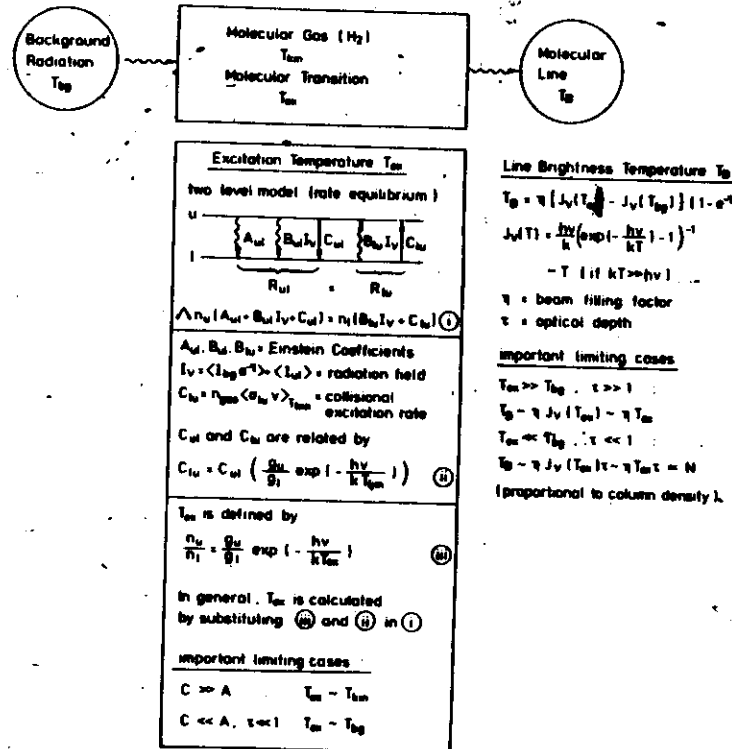 Background
Radiation
T_bg
Molecular Gas (H₂)
T_kin
Molecular Transition
T_ex
Molecular
Line
T_B
Excitation Temperature T_ex
two level model (rate equilibrium)
u
A_ul B_ul I_ν C_ul B_lu I_ν C_lu
l
R_ul = R_lu
∧ n_u (A_ul + B_ul I_ν + C_ul) = n_l (B_lu I_ν + C_lu) (i)
A_ul, B_ul, B_lu = Einstein Coefficients
I_ν = <I_bg e^-τ> + <I_ul> = radiation field
C_lu = n_gas <σ_lu v>_T_kin = collisional
excitation rate
C_ul and C_lu are related by
C_lu = C_ul ( g_u/g_l exp (- hν/kT_kin ) ) (ii)
T_ex is defined by
n_u/n_l = g_u/g_l exp (- hν/kT_ex ) (iii)
In general, T_ex is calculated
by substituting (iii) and (ii) in (i)
important limiting cases
C >> A T_ex ~ T_kin
C << A, τ << 1 T_ex ~ T_bg
Line Brightness Temperature T_B
T_B = η { J_ν(T_ex) - J_ν(T_bg) } (1 - e^-τ
J_ν(T) = hν/k (exp(- hν/kT) - 1)^-1
~ T (if kT >> hν)
η = beam filling factor
τ = optical depth
important limiting cases
T_ex >> T_bg, τ >> 1
T_B ~ η J_ν (T_ex) ~ η T_ex
T_ex << T_bg, τ << 1
T_B ~ η J_ν (T_ex) τ ~ η T_ex τ ∝ N
(proportional to column density).